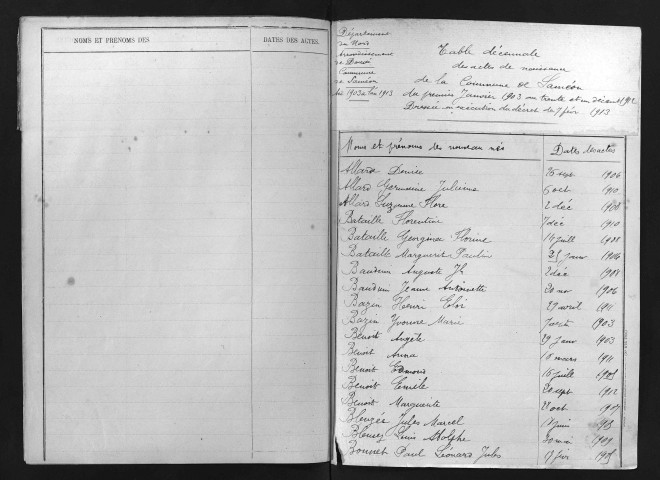 NOMS ET PRENOMS DES
DATES DES ACTES.
Département
du Nord
Arrondissement
de Douai
Commune
de Saméon
1903 à 1913
Table décennale
des actes de naissance
de la Commune de Saméon
du premier Janvier 1903 au trente et un décembre 1912
Dressée en exécution du décret du 7 fév 1913
Noms et prénoms des nouveau nés Dates des actes
Allard Denise 25 sept 1906
Allard Germaine Julienne 6 oct 1910
Allard Suzanne Flore 2 déc 1908
Bataille Florentine 7 déc 1910
Bataille Georgina Florine 14 juill 1908
Bataille Marguerite Pauline 25 janv 1906
Bauduin Auguste Jh 2 déc 1908
Bauduin Jeanne Antoinette 20 nov 1906
Bazin Henri Eloi 27 avril 1911
Bazin Yvonne Marie 1903
Benoit Angèle 29 janv 1903
Benoit Anna 10 mars 1911
Benoit Edmond 16 juill 1905
Benoit Emile 20 sept 1912
Benoit Marguerite 28 oct 1907
Bleuzé Jules Marcel juin 1903
Bleuzez Louis Adolphe 30 mai 1909
Bonnet Paul Léonard Jules 17 fév 1905